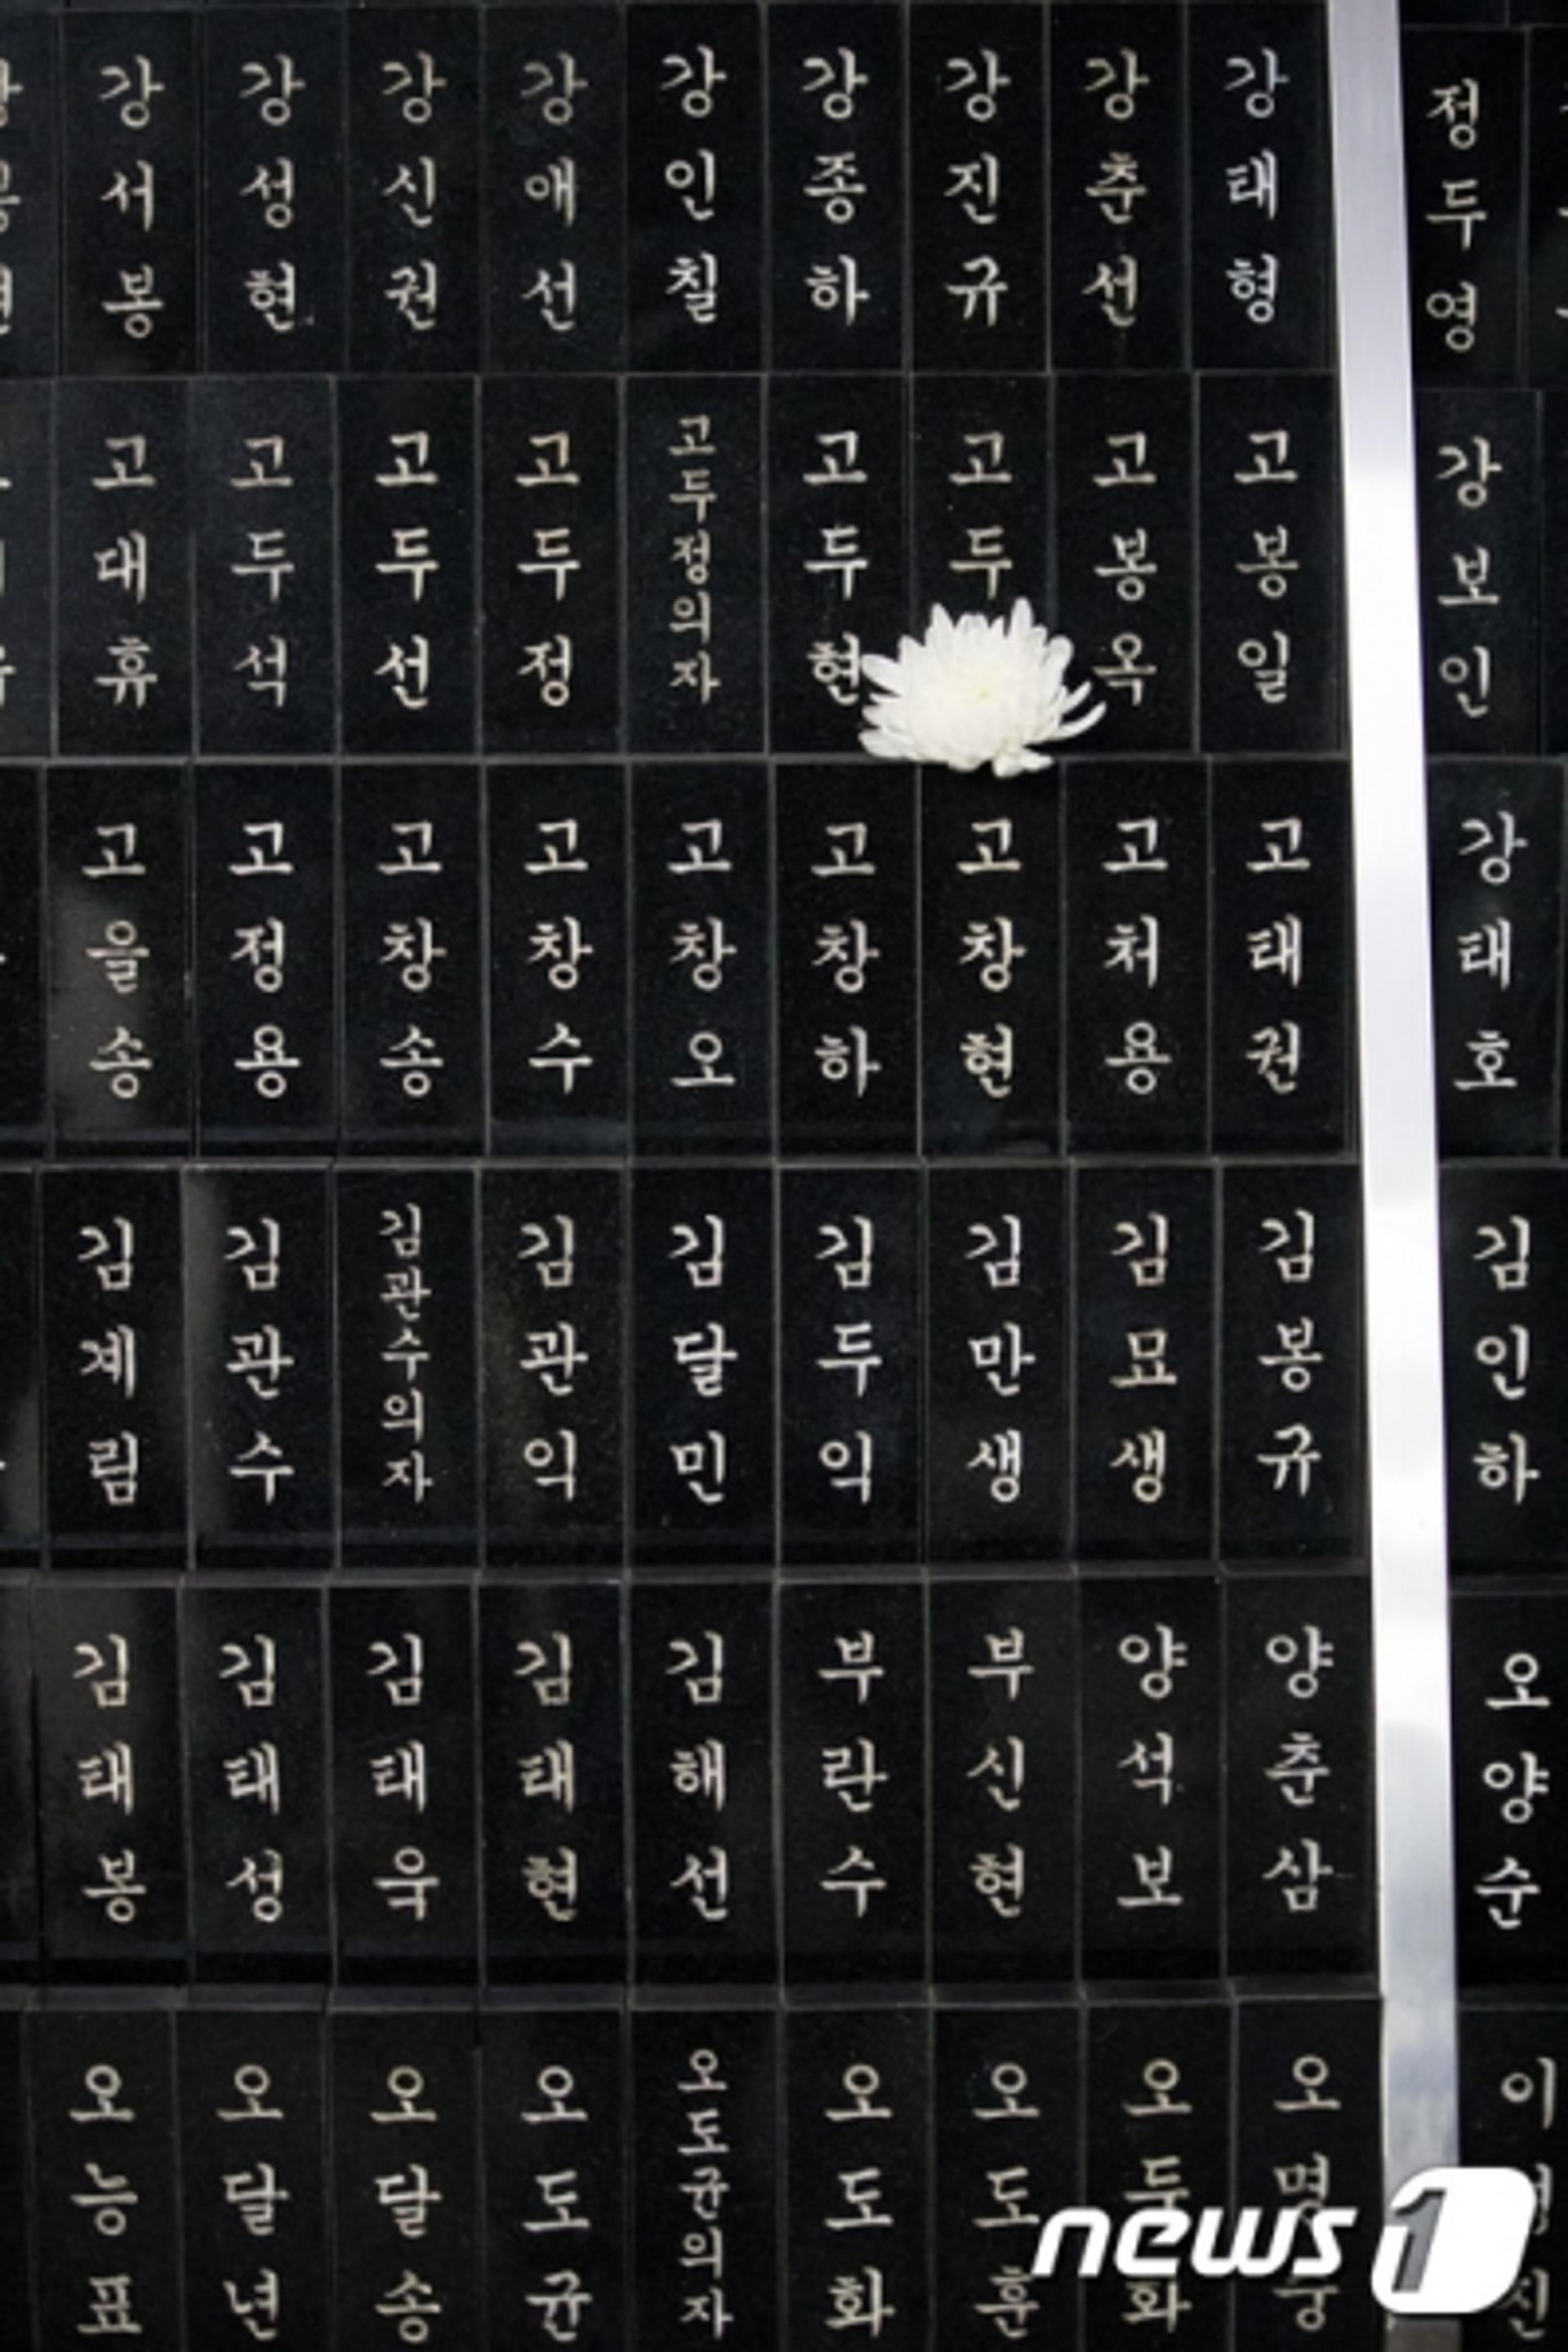 강서봉
강성현
강신권
강애선
강인칠
강종하
강진규
강춘선
강태형
정두영
고대휴
고두석
고두선
고두정
고두정의자
고두현
고두
고봉옥
고봉일
강보인
고을송
고정용
고창송
고창수
고창오
고창하
고창현
고처용
고태권
강태호
김계림
김관수
김관수의자
김관익
김달민
김두익
김만생
김묘생
김봉규
김인하
김태봉
김태성
김태욱
김태현
김해선
부란수
부신현
양석보
양춘삼
오양순
오능표
오달년
오달송
오도균
오도균의자
오도화
오도훈
오두화
오명
이
news1